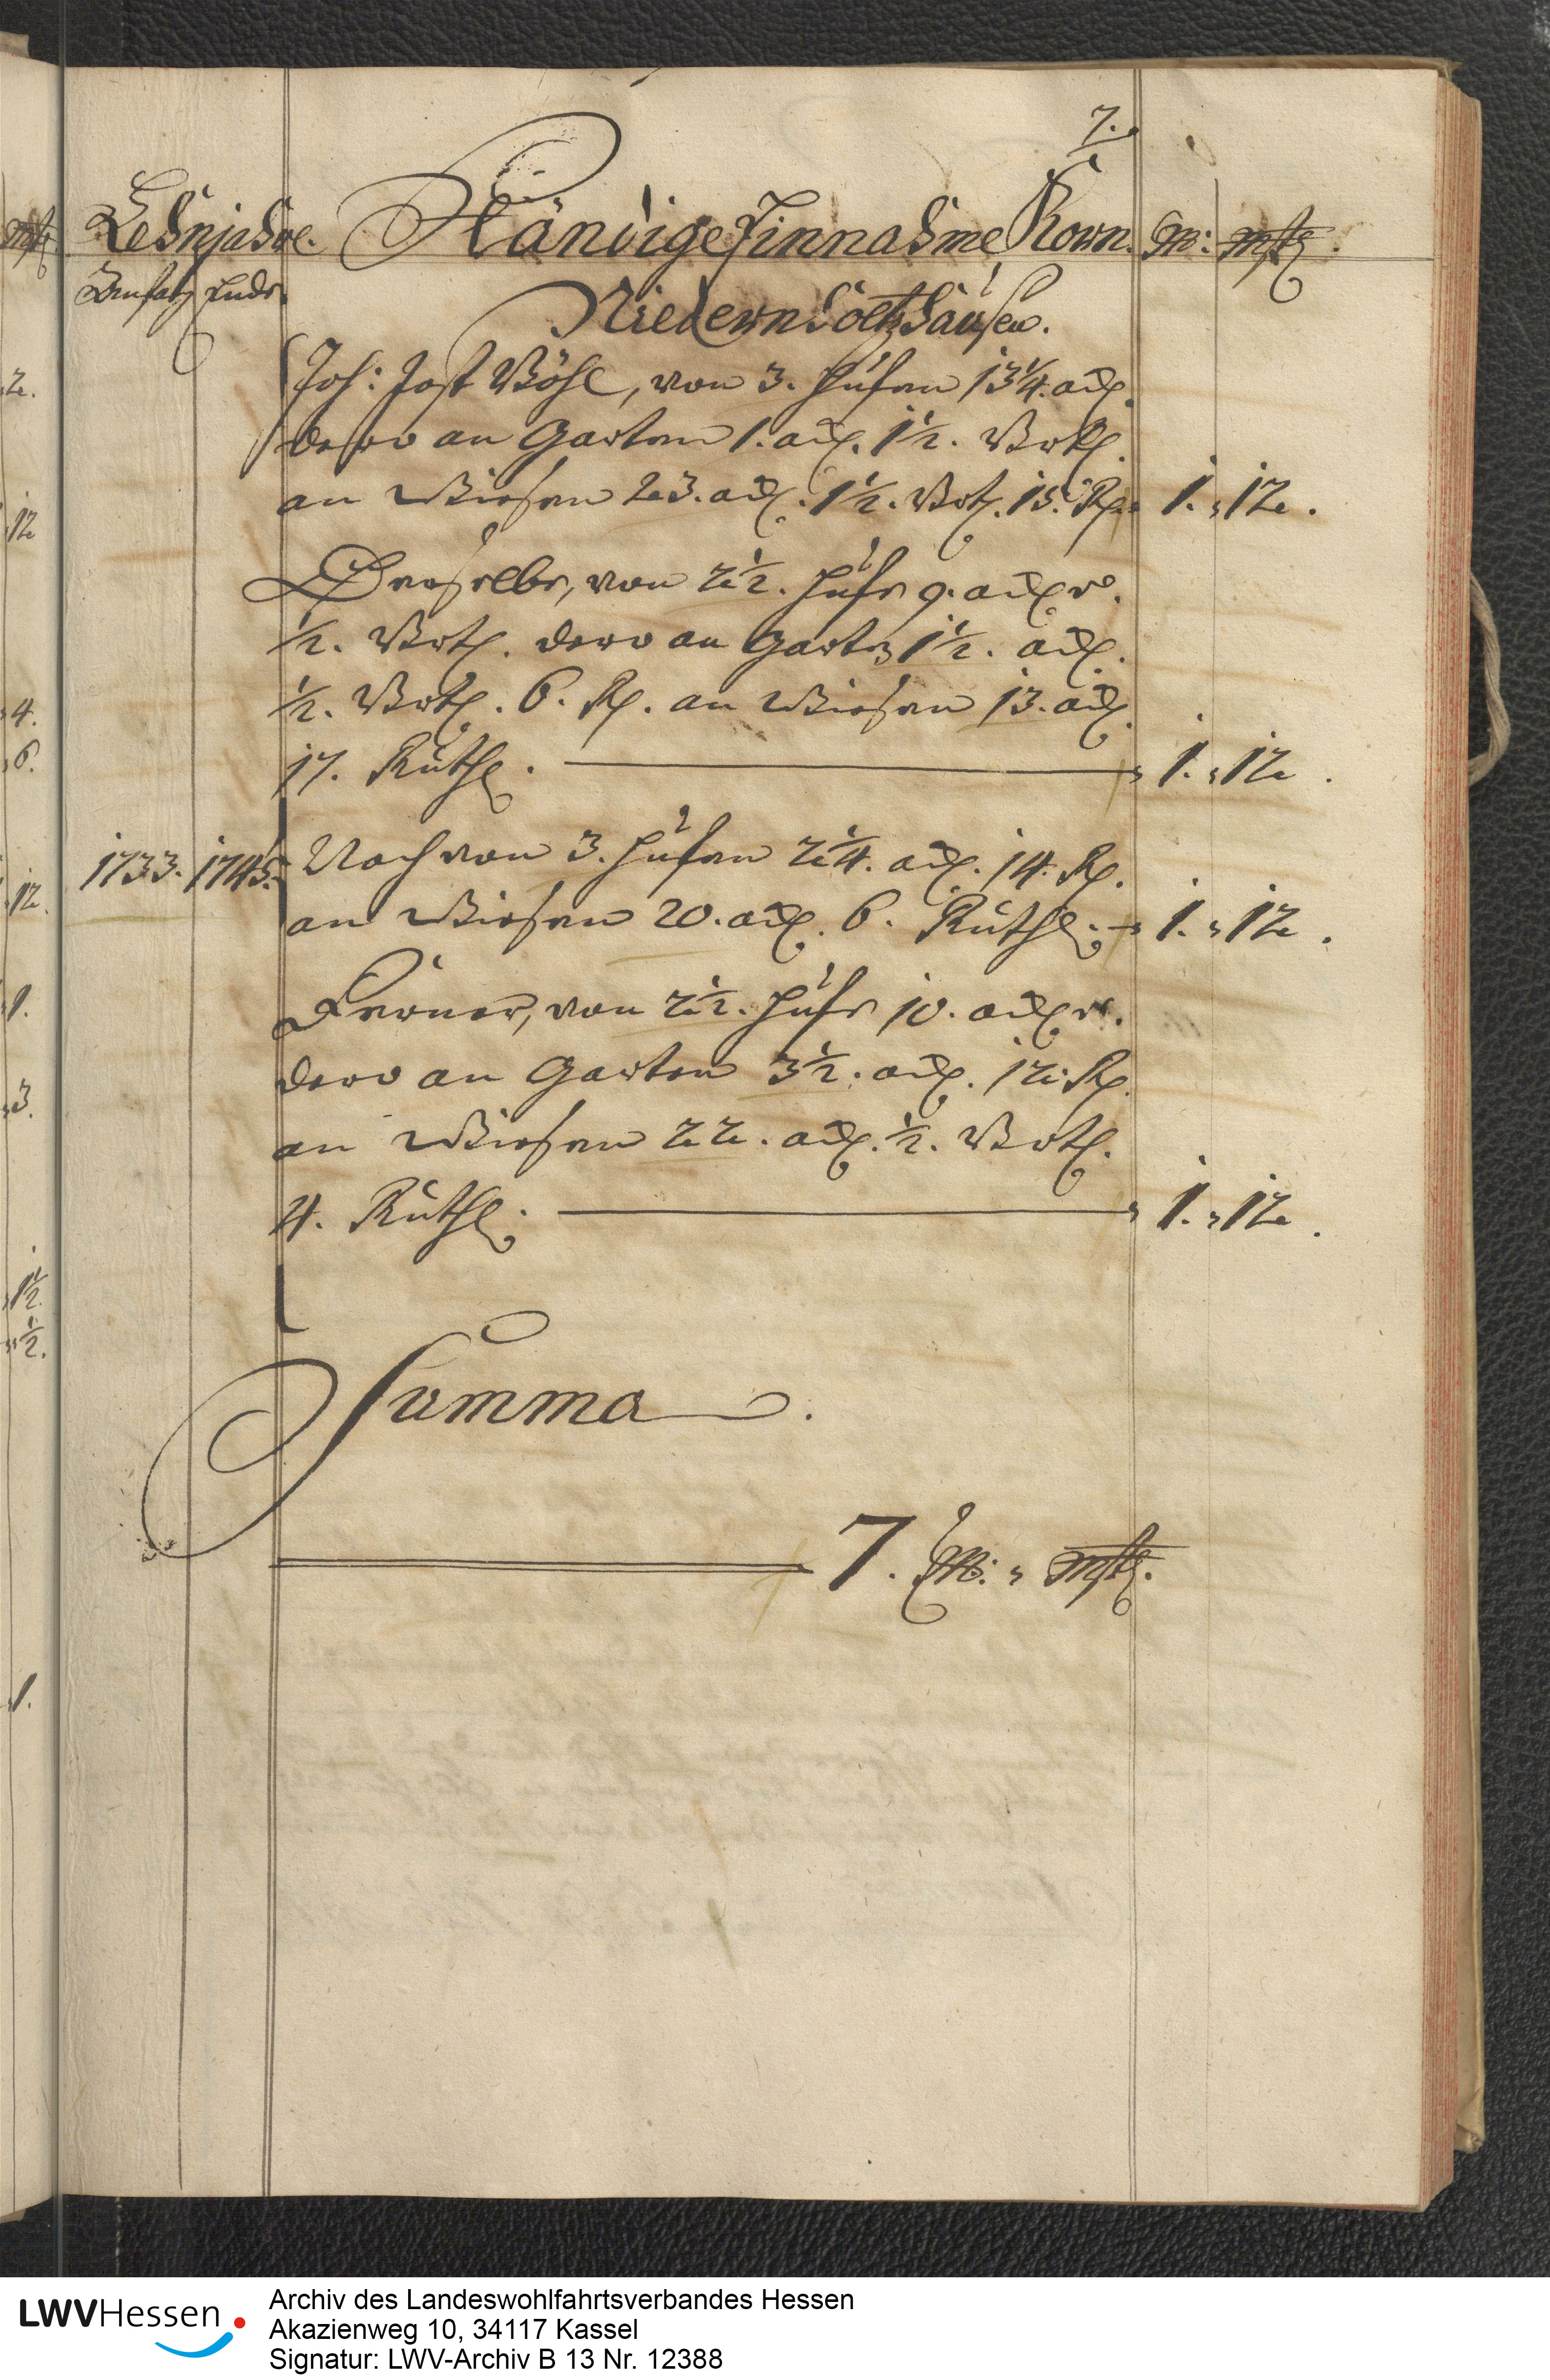 7.
Lehnjahre. Ständige Einnahme Korn. M: mtz.
Anfang Ende.
Niedernholtzhausen.
Joh: Jost Böhl, von 3. Hufen 13 1/4. ack.
dero an Garten 1. ack. 1 1/2. Vrtl.
an Wiesen 23. ack. 1 1/2. Vrt. 15. R. 1. " 12.
Derselbe, von 2 1/2. Hufe 9. acker.
1/2. Vrtl. dero an Garten 1 1/2. ack.
1/2. Vrtl. 6. R. an Wiesen 13. ack.
17. Ruth. 1. " 12.
1733. 1745. Noch von 3. Hufen 2 1/4. ack. 14. R.
an Wiesen 20. ack. 6. Ruth. 1. " 12.
Ferner, von 2 1/2. Hufe 10. acker.
dero an Garten 3 1/2. ack. 12. R.
an Wiesen 22. ack. 1/2. Vrtl.
4. Ruth. 1. " 12.
Summa.
7. M: " mtz.
LWVHessen
Archiv des Landeswohlfahrtsverbandes Hessen
Akazienweg 10, 34117 Kassel
Signatur: LWV-Archiv B 13 Nr. 12388